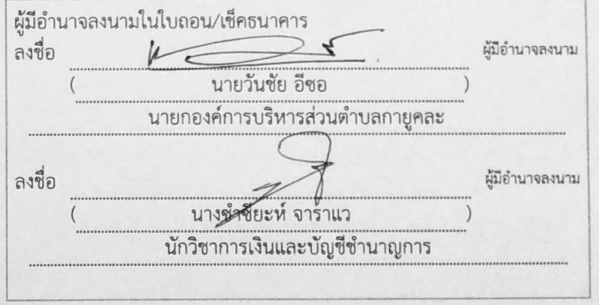 ผู้มีอำนาจลงนามในใบถอน/เช็คธนาคาร
ลงชื่อ ผู้มีอำนาจลงนาม
( นายวันชัย อีซอ )
นายกองค์การบริหารส่วนตำบลกายูคละ
ลงชื่อ ผู้มีอำนาจลงนาม
( นางซำซียะห์ จาราแว )
นักวิชาการเงินและบัญชีชำนาญการ